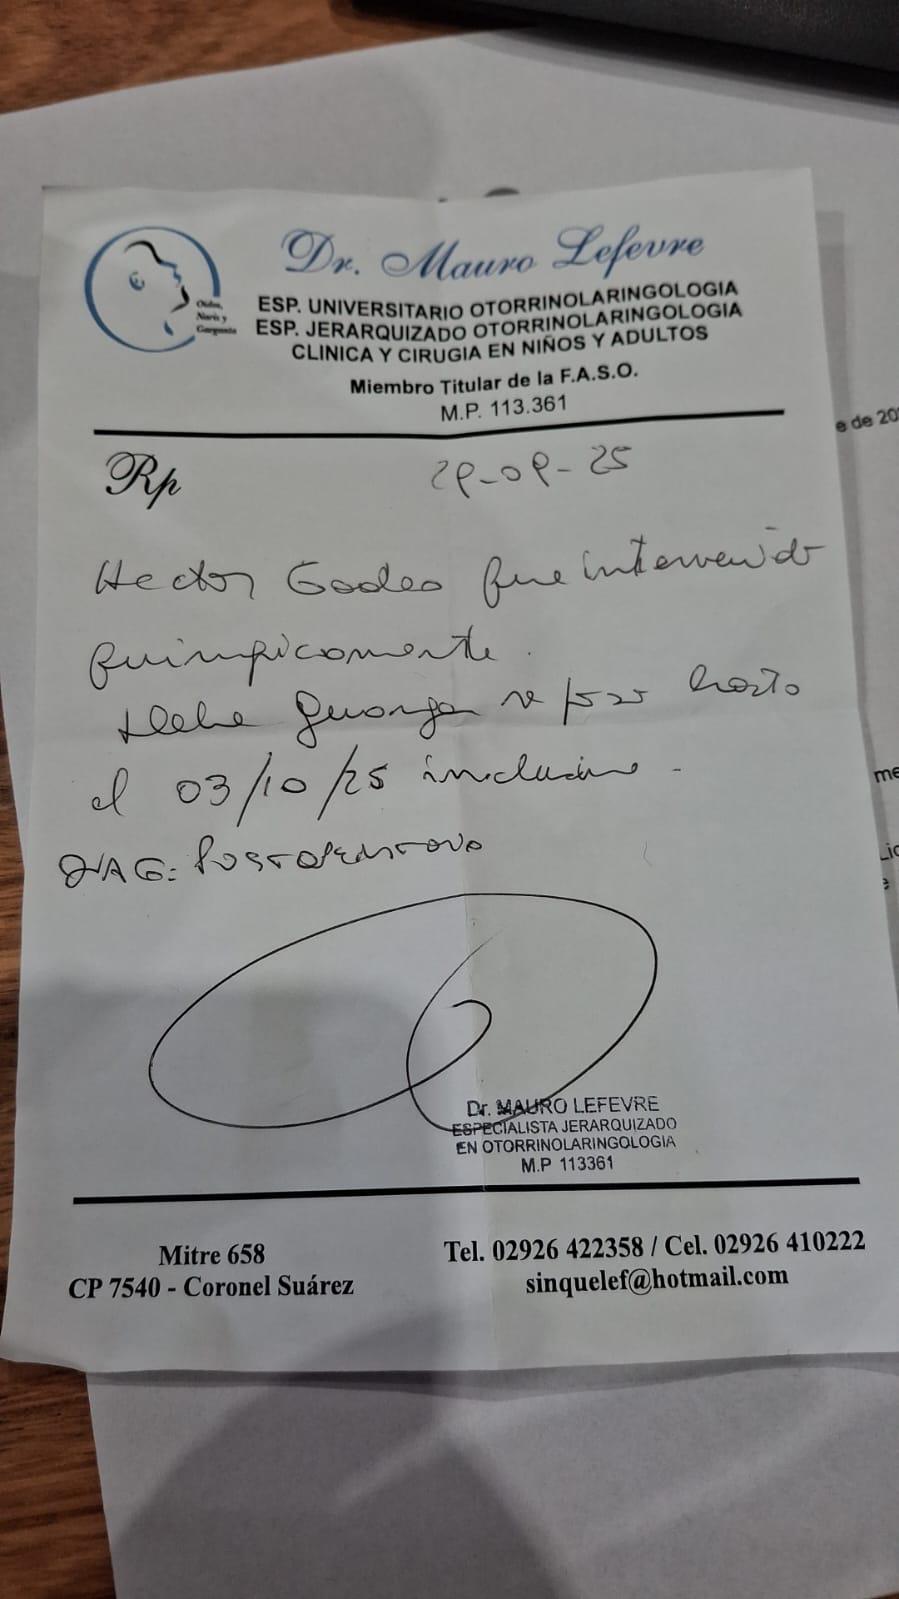 Dr. Mauro Lefevre
ESP. UNIVERSITARIO OTORRINOLARINGOLOGIA
ESP. JERARQUIZADO OTORRINOLARINGOLOGIA
CLINICA Y CIRUGIA EN NIÑOS Y ADULTOS
Miembro Titular de la F.A.S.O.
M.P. 113.361
Oidos,
Nariz y
Garganta
Rp
29-09-25
Hector fue intervenido
quirurgicamente.
Debe hasta
el 03/10/25 inclusive.
DIAG: POSTOPERATORIO
Dr. MAURO LEFEVRE
ESPECIALISTA JERARQUIZADO
EN OTORRINOLARINGOLOGIA
M.P 113361
Mitre 658
CP 7540 - Coronel Suárez
Tel. 02926 422358 / Cel. 02926 410222
sinquelef@hotmail.com
e de 20
me